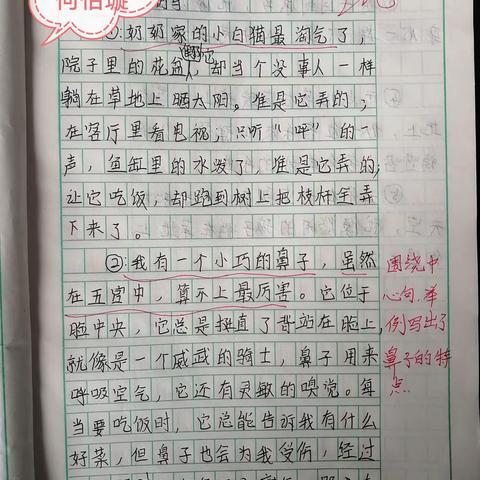 何佰璇
当
①:奶奶家的小白猫最淘气了,
院子里的花盆翻了,却当个没事人一样
躺在草地上晒太阳。准是它弄的;
在客厅里看电视,只听"呯"的一
声,鱼缸里的水泼了,准是它弄的;
让它吃饭,却跑到树上把枝杆全弄
下来了。
②:我有一个小巧的鼻子,虽然
在五官中,算不上最厉害。它位于
脸中央,它总是挺直了背站在脸上,
就像是一个威武的骑士,鼻子用来
呼吸空气,它还有灵敏的嗅觉。每
当要吃饭时,它总能告诉我有什么
好菜,但鼻子也会为我受伤,经过
围绕中
心句,举
例写出了
鼻子的特
点.